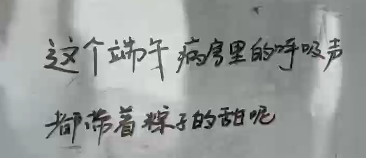 这个端午病房里的呼吸声
都带着粽子的甜呢